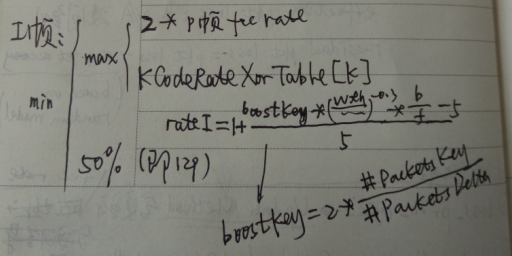 I帧:
2 * P帧 fec rate
max
KCodeRateXorTable[K]
min
rateI = 1 + (boostKey * (wxh)^-0.3 * b/f - 5) / 5
50% (即127)
boostKey = 2 * #PacketsKey / #PacketsDelta